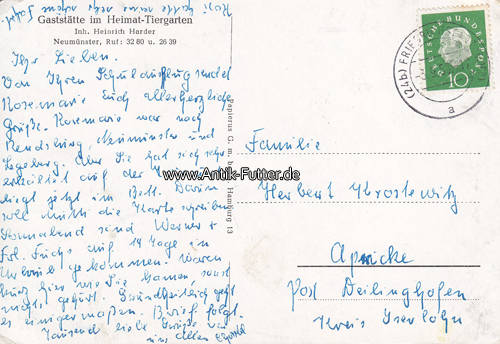 Gaststätte im Heimat-Tiergarten
Inh. Heinrich Harder
Neumünster, Ruf: 32 80 u. 26 39
Ihr Lieben.
Von Ihrem Schulausflug sendet
Rosemarie Euch allerherzliche
Grüße. Rosemarie war nach
Rendsburg, Neumünster und
Segeberg. Aber Sie hat sich sehr
erkältet auf der
liegt jetzt im Bett. Darum
soll die Karte schreiben
Sonnabend sind Werner +
Frl. Fuchs auf 14 Tage in
Urlaub gekommen. waren
kurz hier wie Sie kamen, sonst
nichts gehört. Gesundheitlich geht
es einigermaßen. Brief folgt.
Tausend liebe Grüße
von allen
Papierus G. m. b. Hamburg 13
www.Antik-Futter.de
DEUTSCHE BUNDESPOST
10
(24b) FRIE
a
Familie
Herbert Chrostewitz
Apricke
Post Deilinghofen
Kreis Iserlohn